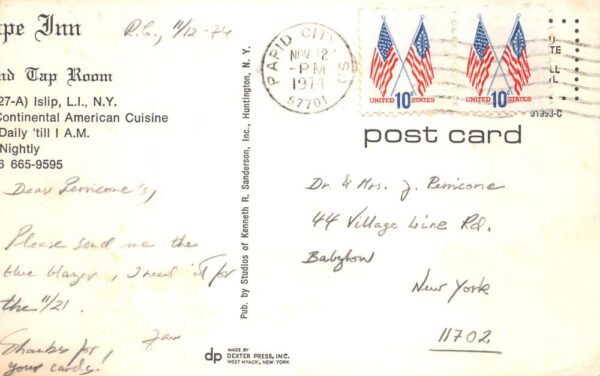 pe Inn
nd Tap Room
27-A) Islip, L.I., N.Y.
Continental American Cuisine
Daily 'till 1 A.M.
Nightly
6 665-9595
R.C., 11/12-74
Dear Perricone's,
Please send me the
blue blazer, I need it for
the 11/21.
Thanks for,
your cards
Pub. by Studios of Kenneth R. Sanderson, Inc., Huntington, N. Y.
dp MADE BY
DEXTER PRESS, INC.
WEST NYACK, NEW YORK
RAPID CITY SD
NOV 12
-PM
1974
57701
UNITED 10c STATES
UNITED 10c STATES
TE
LL
L
post card
Dr & Mrs. J. Perricone
44 Village Line Rd.
Babylon
New York
11702